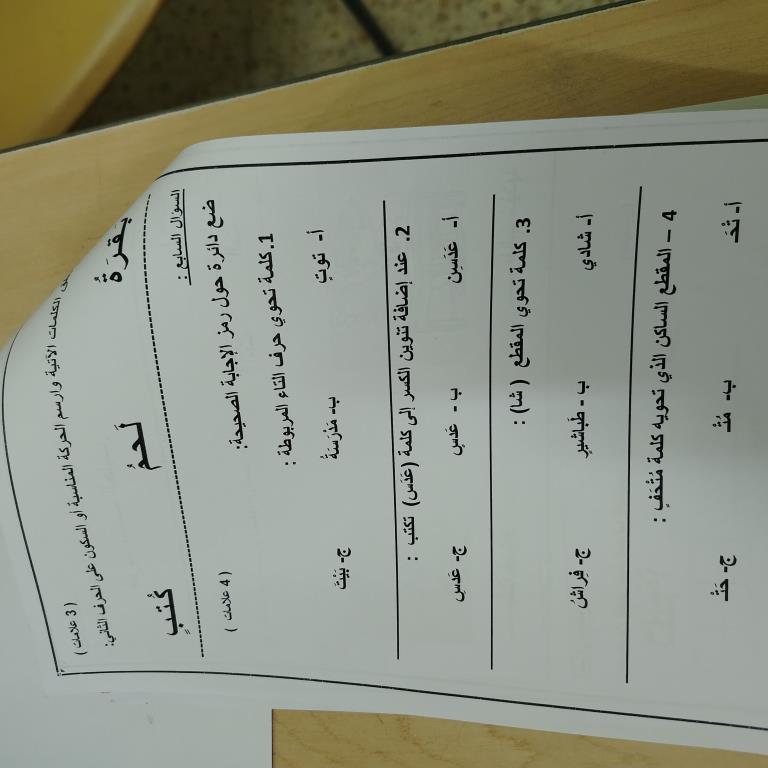 الكلمات الآتية وارسم الحركة المناسبة أو السكون على الحرف الثاني: ( 3 علامات )
بَقرَةُ لَحمُ كُتبٍ
السؤال السابع :
ضع دائرة حول رمز الإجابة الصحيحة: ( 4 علامات )
1. كلمة تحوي حرف التاء المربوطة :
أ- توتٍ ب- مَدْرَسَةُ ج- بَيْتَ
2. عند إضافة تنوين الكسر إلى كلمة (عَدَس) تكتب :
أ- عَدَسِن ب - عَدَسٍ ج- عَدسِ
3. كلمة تحوي المقطع ( شا) :
أ- شادي ب - طَباشيرِ ج- فِراشُ
4 – المقطع الساكن الذي تحويه كلمة مُتْحَفِ :
أ- تْحَـ ب- مُتْـ ج- حَتْـ